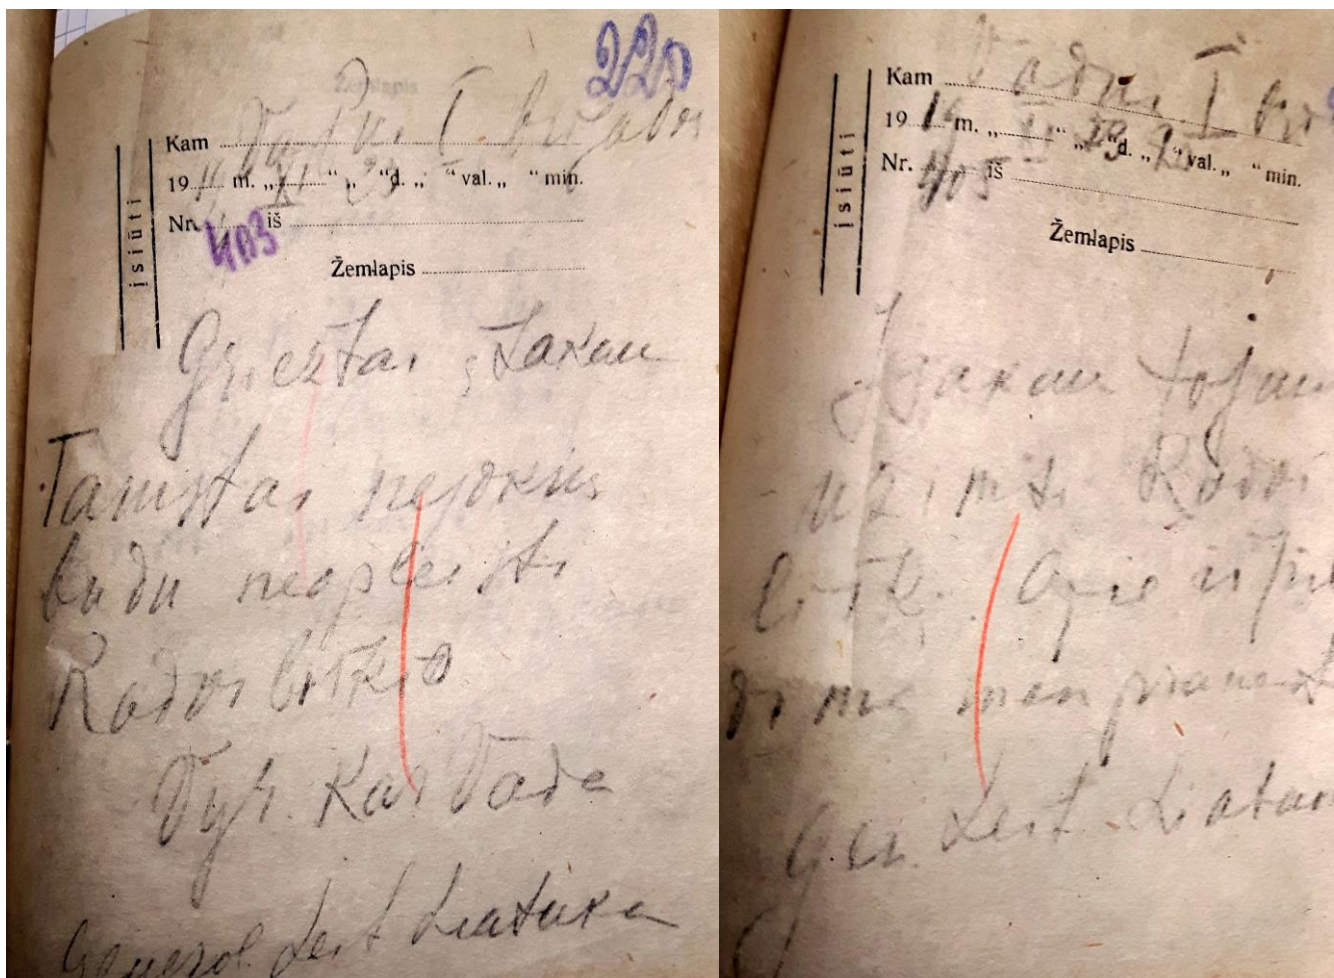 220
Kam Vadui I brigados
1919 m. „XI“ „23“ d. „ “ val. „ “ min.
Nr. 403 iš
Žemlapis
įsiūti
Griežtai įsakau
Tamstai nejokiu
budu neapleisti
Radviliškio
Vyr. Kar Vado
General. Leit Liatuko
Kam Vadui I bri
1919 m. „XI“ „ “ d. „ “ val. „ “ min.
Nr. 405 iš
Žemlapis
įsiūti
Įsakau tojau
užimti Radvi
Apie išpil
dimą man pranešt
Gen. Leit. Liatu